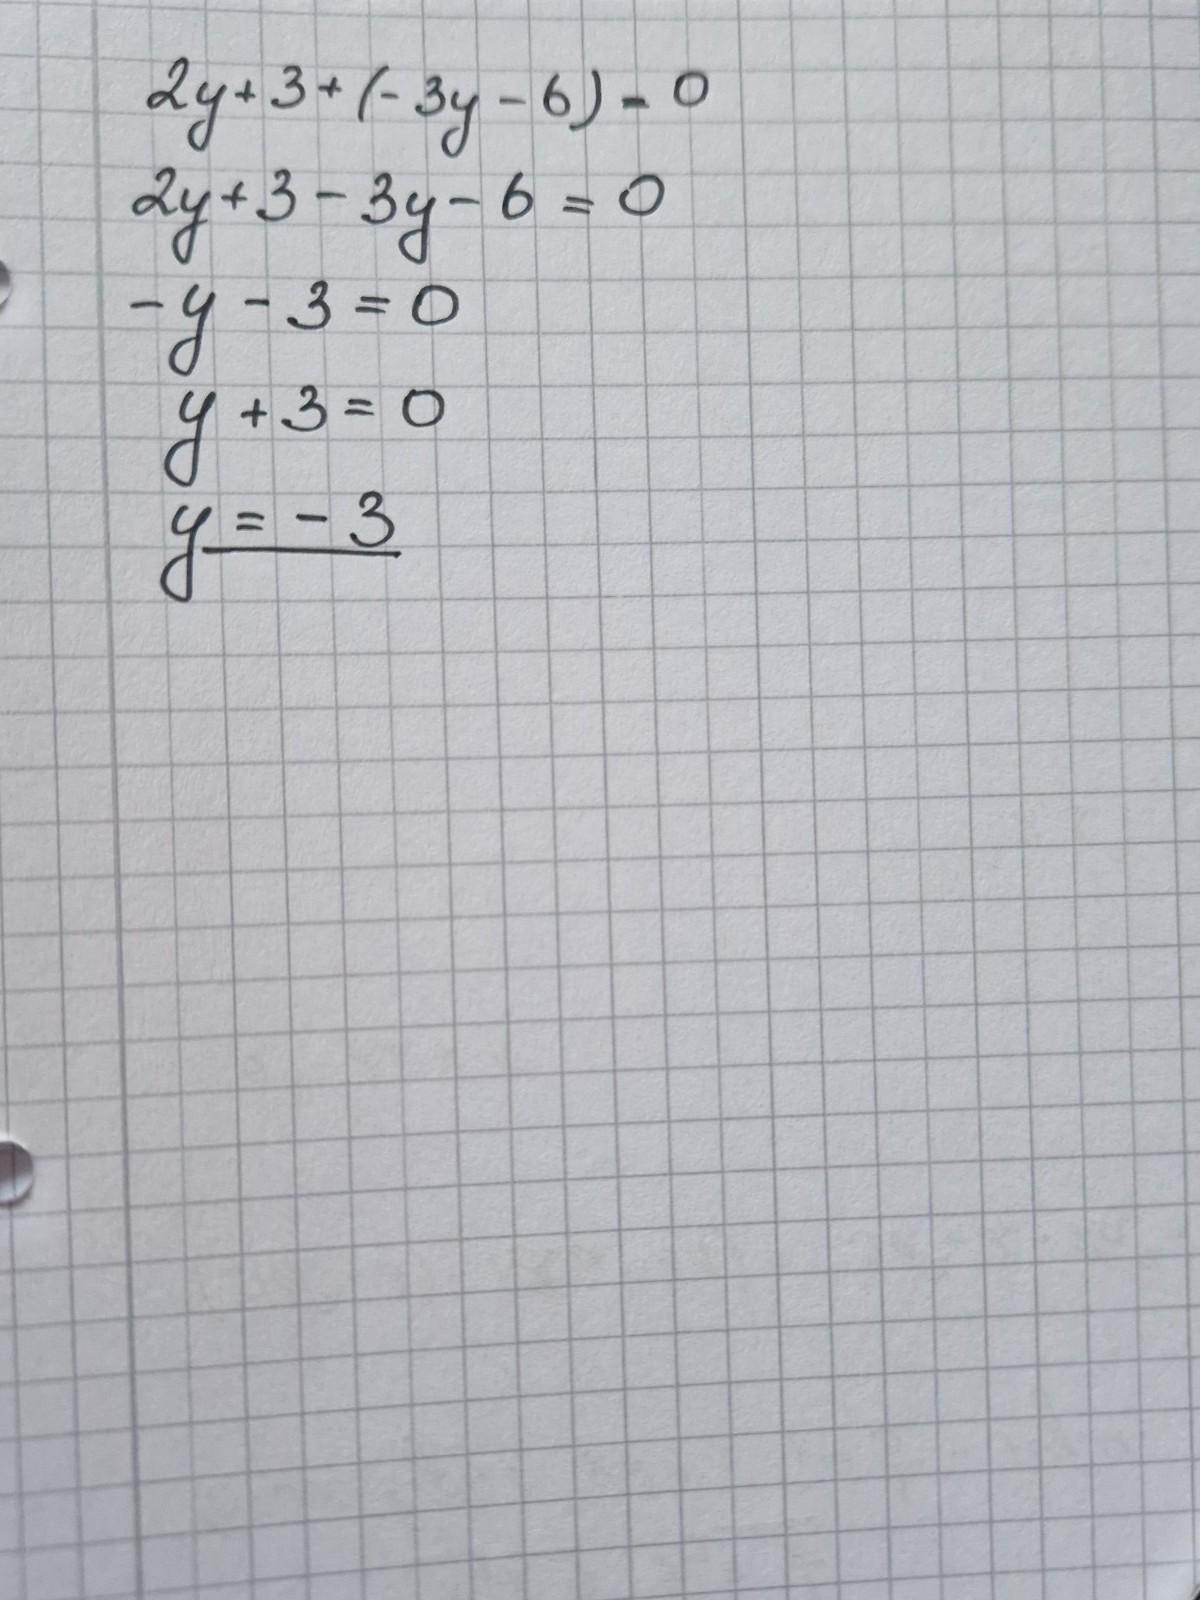 2y+3+(-3y-6)=0
2y+3-3y-6=0
-y-3=0
y+3=0
y=-3